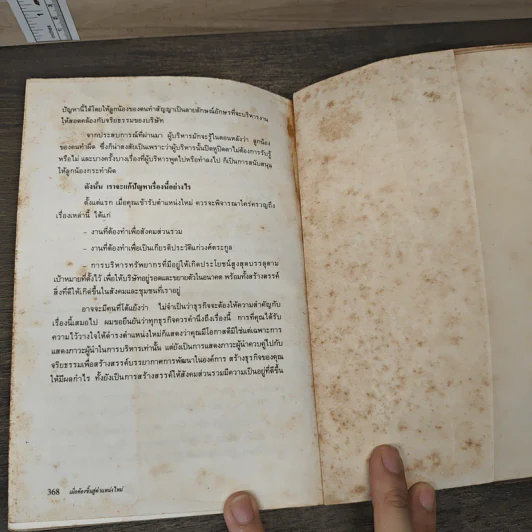 ปัญหานี้ได้โดยให้ลูกน้องของตนทำสัญญาเป็นลายลักษณ์อักษรที่จะบริหารงาน
ให้สอดคล้องกับจริยธรรมของบริษัท
จากประสบการณ์ที่ผ่านมา ผู้บริหารมักจะรู้ในตอนหลังว่า ลูกน้อง
ของตนทำผิด ซึ่งก็น่าสงสัยเป็นเพราะว่าผู้บริหารนั้นปิดหูปิดตาไม่ต้องการรับรู้
หรือไม่ และบางครั้งบางเรื่องที่ผู้บริหารพูดไปหรือทำลงไป ก็เป็นการสนับสนุน
ให้ลูกน้องกระทำผิด
ดังนั้น เราจะแก้ปัญหาเรื่องนี้อย่างไร
ตั้งแต่แรก เมื่อคุณเข้ารับตำแหน่งใหม่ ควรจะพิจารณาใคร่ครวญถึง
เรื่องเหล่านี้ ได้แก่
– งานที่ต้องทำเพื่อสังคมส่วนรวม
– งานที่ต้องทำเพื่อเป็นเกียรติประวัติแก่วงศ์ตระกูล
– การบริหารทรัพยากรที่มีอยู่ให้เกิดประโยชน์สูงสุดบรรลุตาม
เป้าหมายที่ตั้งไว้ เพื่อให้บริษัทอยู่รอดและขยายตัวในอนาคต พร้อมทั้งสร้างสรรค์
สิ่งที่ดีให้เกิดขึ้นในสังคมและชุมชนที่เราอยู่
อาจจะมีคนที่โต้แย้งว่า ไม่จำเป็นว่าธุรกิจจะต้องให้ความสำคัญกับ
เรื่องนี้เสมอไป ผมขอยืนยันว่าทุกธุรกิจควรคำนึงถึงเรื่องนี้ การที่คุณได้รับ
ความไว้วางใจให้ดำรงตำแหน่งใหม่ก็แสดงว่าคุณมีโอกาสดีมิใช่แต่เฉพาะการ
แสดงภาวะผู้นำในการบริหารเท่านั้น แต่ยังเป็นการแสดงภาวะผู้นำควบคู่ไปกับ
จริยธรรมเพื่อสร้างสรรค์บรรยากาศการพัฒนาในองค์การ สร้างธุรกิจของคุณ
ให้มีผลกำไร ทั้งยังเป็นการสร้างสรรค์ให้สังคมส่วนรวมมีความเป็นอยู่ที่ดีขึ้น
368 เมื่อต้องขึ้นสู่ตำแหน่งใหม่